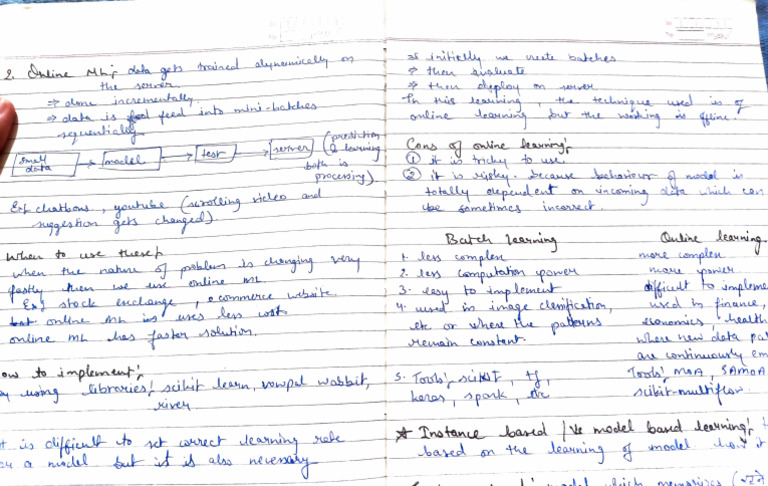 2. Online ML: data gets trained dynamically on
the server.
⇒ done incrementally
⇒ data is feed into mini-batches
sequentially
small data → model → test → server (prediction & learning both is processing)
Ex: chatbons, youtube (scrolling video and
suggestion gets changed).
When to use these?
when the nature of problem is changing very
fastly then we use online ML
Ex: stock exchange, ecommerce website
online ML is uses less cost
online ML has faster solution.
ow to implement:
y using libraries: scikit learn, vowpal wabbit,
river
t is difficult to set correct learning rate
a model but it is also necessary
⇒ initially we create batches
⇒ then evaluate
⇒ then deploy on server
In this learning, the technique used is of
online learning but the working is offline.
Cons of online learning:
① it is tricky to use
② it is risky. because behaviour of model is
totally dependent on incoming data which can
be sometimes incorrect.
Batch learning
1. less complex
2. less computation power
3. easy to implement
4. used in image clasification,
etc or where the patterns
remain constant.
5. Tools: scikit, tf,
keras, spark, etc
Online learning
more complex
more power
difficult to impleme
used in finance,
economics, health
where new data pat
are continuously em
Tools: MOA, SAMOA
scikit-multiflow.
★ Instance based / Vs model based learning:
based on the learning of model how it
model which memorizes (रटने